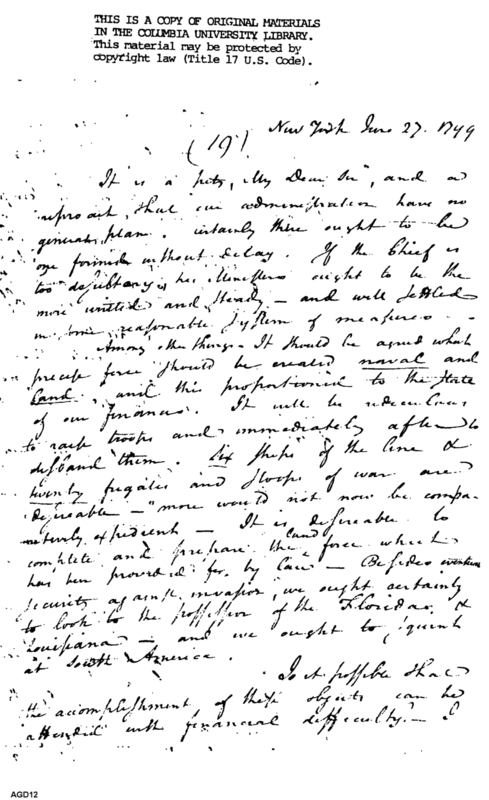 THIS IS A COPY OF ORIGINAL MATERIALS
IN THE COLUMBIA UNIVERSITY LIBRARY.
This material may be protected by
copyright law (Title 17 U.S. Code).
New York June 27. 1799
(19)
It is a pity, My Dear Sir, and a
reproach, that our administration have no
general plan. Certainly there ought to be
one formed without delay. If the Chief is
too desultory, his Ministers ought to be the
more united and steady — and well settled
in some reasonable system of measures.
Among other things — It should be agreed what
precise force should be created naval and
land, and this proportioned to the State
of our finances. It will be ridiculous
to raise troops and immediately after to
disband them. Six ships of the line &
twenty frigates and sloops of war are
desireable — more would not now be compa-
ratively expedient — It is desireable to
complete and prepare the land force which
has been provided for by law — Besides eventual
security against invasion, we ought certainly
to look to the possession of the Floridas &
Louisiana — and we ought to squint
at South America.
Is it possible that
the accomplishment of these objects can be
attended with financial difficulty? — I
AGD12